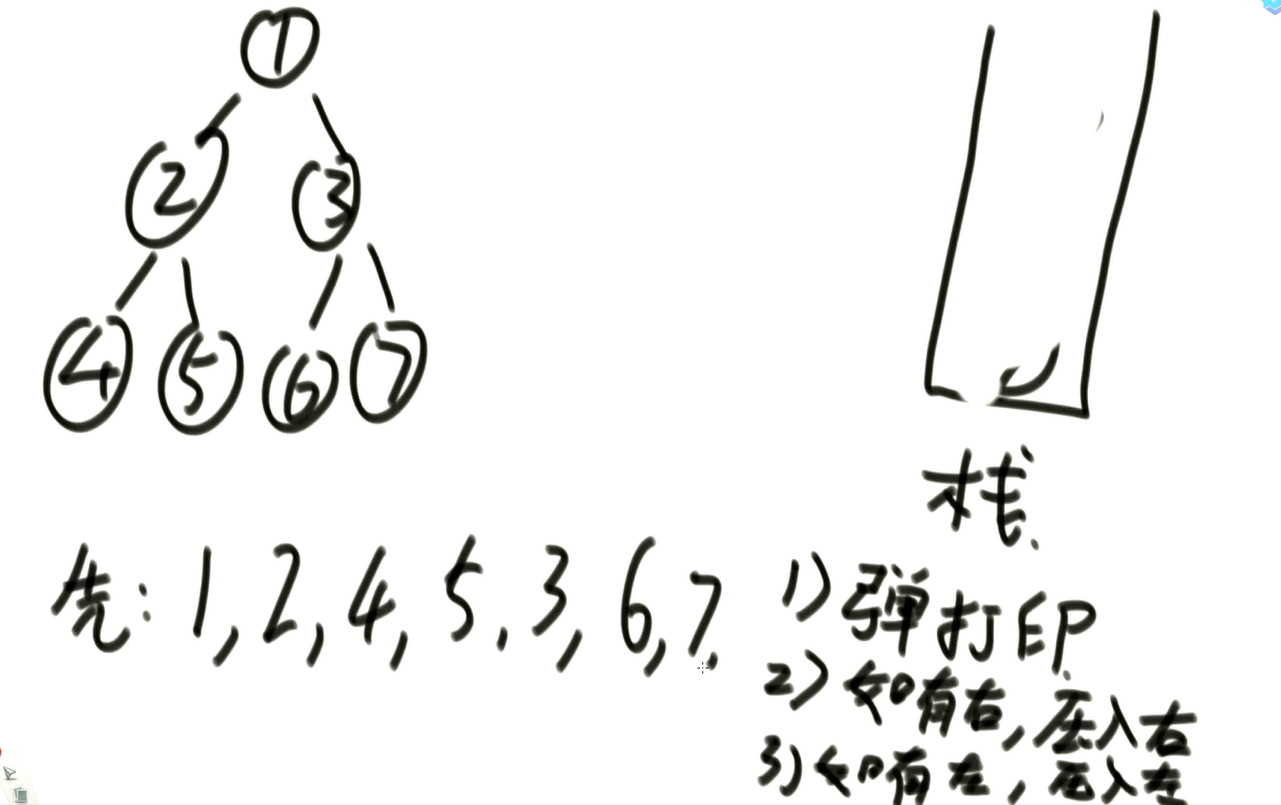 1
2 3
4 5 6 7
栈.
先: 1, 2, 4, 5, 3, 6, 7,
1) 弹打印.
2) 如有右, 压入右
3) 如有左, 压入左